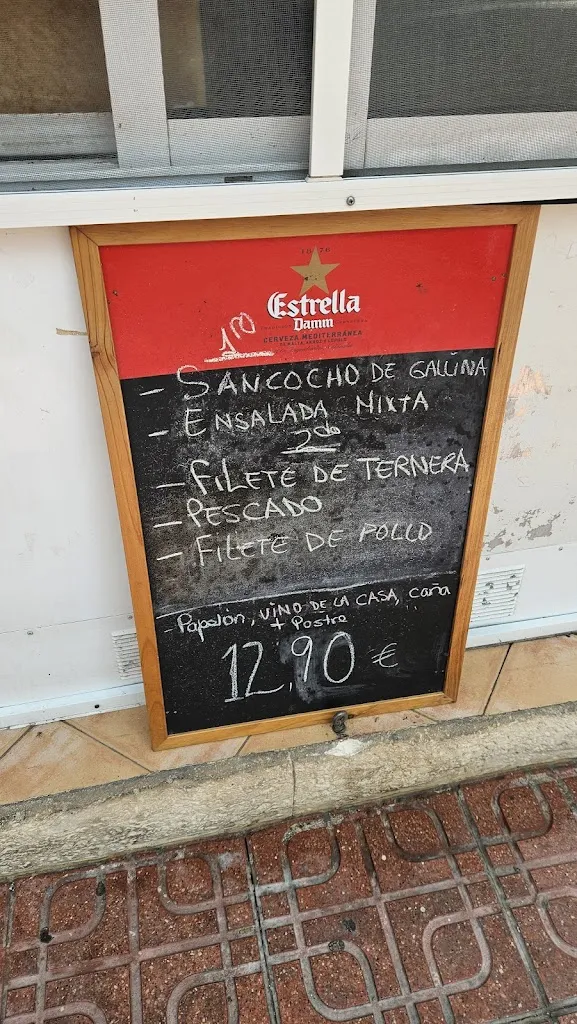 1876
Estrella
Damm
CERVEZA MEDITERRÁNEA
1º
- SANCOCHO DE GALLINA
- ENSALADA MIXTA
2do
- FILETE DE TERNERA
- PESCADO
- FILETE DE POLLO
- Papelón, VINO DE LA CASA, caña
+ Postre
12,90 €